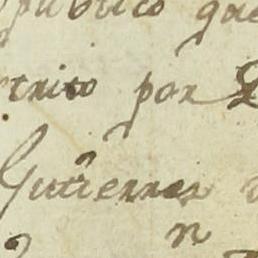 publico que
trito por
Gutierrez
n